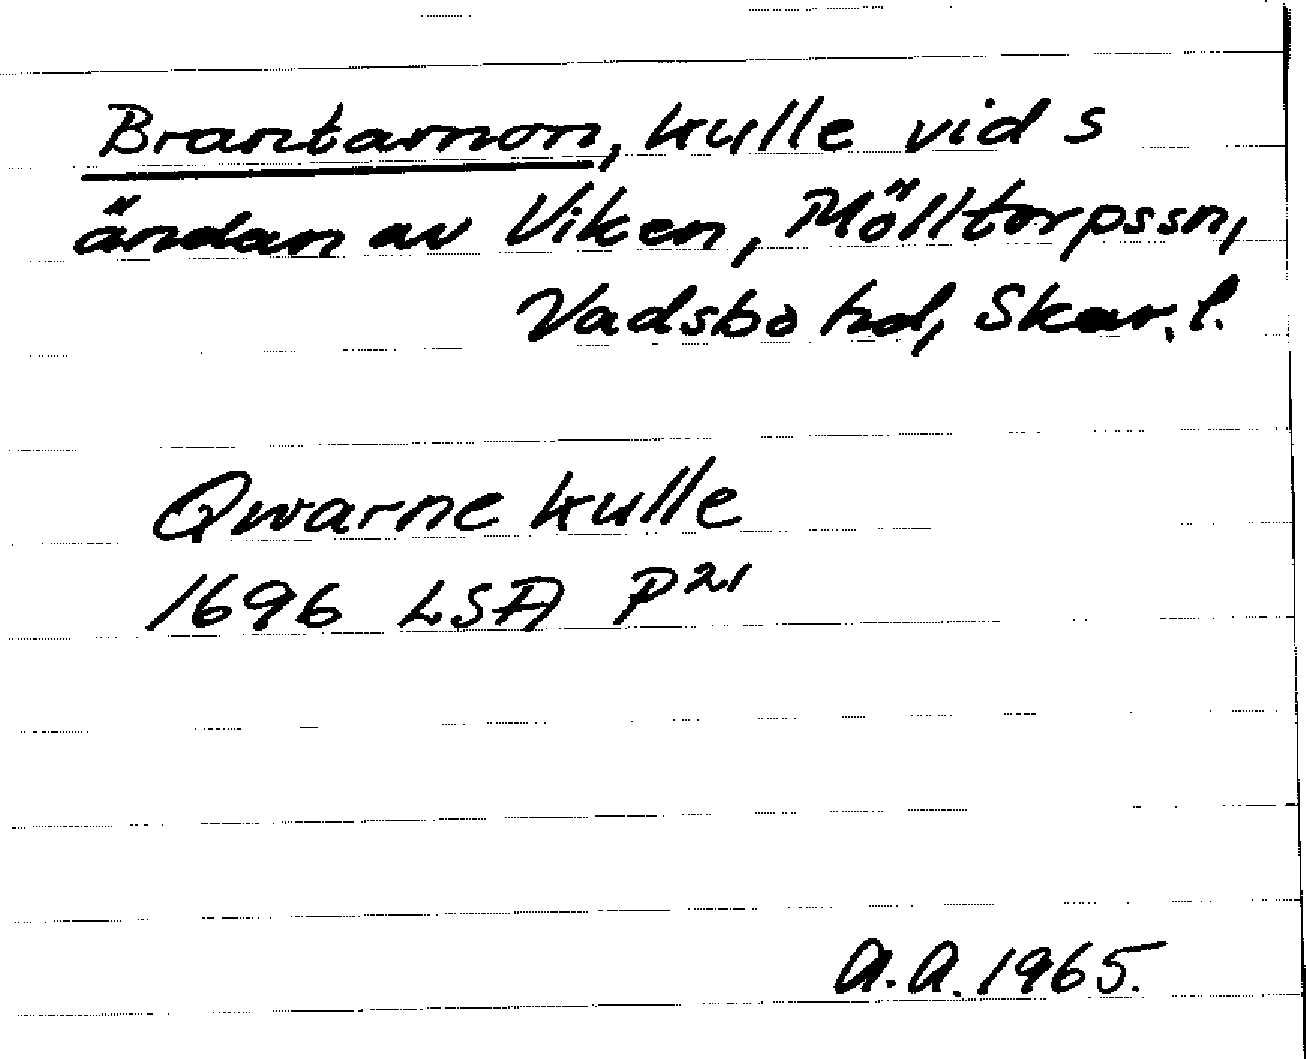 Brantarnon, kulle vid s
ändan av Viken, Mölltorpssn,
Vadsbo hd, Skar. l.
Qwarne kulle
1696 LSA P21
A.A. 1965.